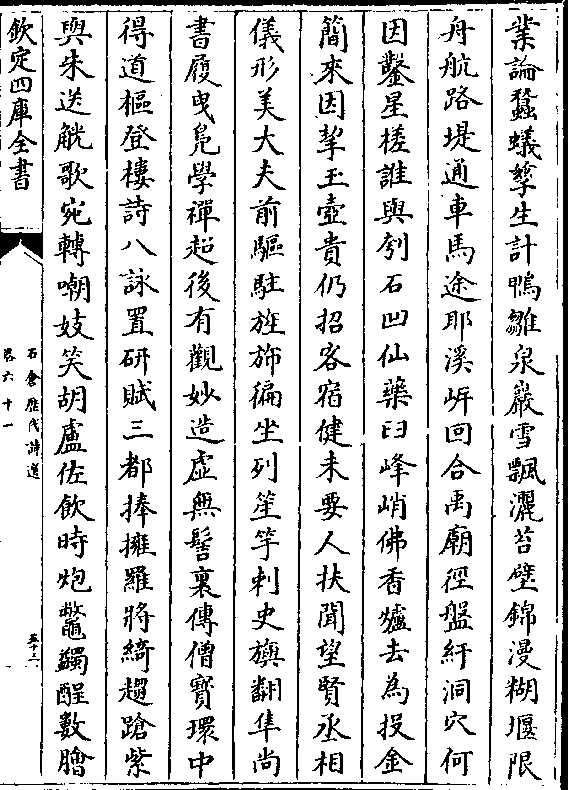 業論蠶蟻孳生計鴨雛泉巖雪飄灑苔壁錦漫糊堰限
舟航路堤通車馬途耶溪岸回合禹廟徑盤紆洞穴何
因鑿星槎誰與刳石凹仙藥臼峰峭佛香爐去為投金
簡來因挈玉壺貴仍招客宿健未要人扶聞望賢丞相
儀形美大夫前驅駐旌斾徧坐列笙竽刺史旟翻隼尚
書履曳鳧學禪超後有觀妙造虛無髻裏傳僧寳環中
得道樞登樓詩八詠置硏賦三都捧擁羅將綺趨蹌紫
與朱送觥歌宛轉嘲妓笑胡盧佐飲時炮鼈蠲酲數膾
欽定四庫全書
石倉歷代詩選
卷六十一
五十三